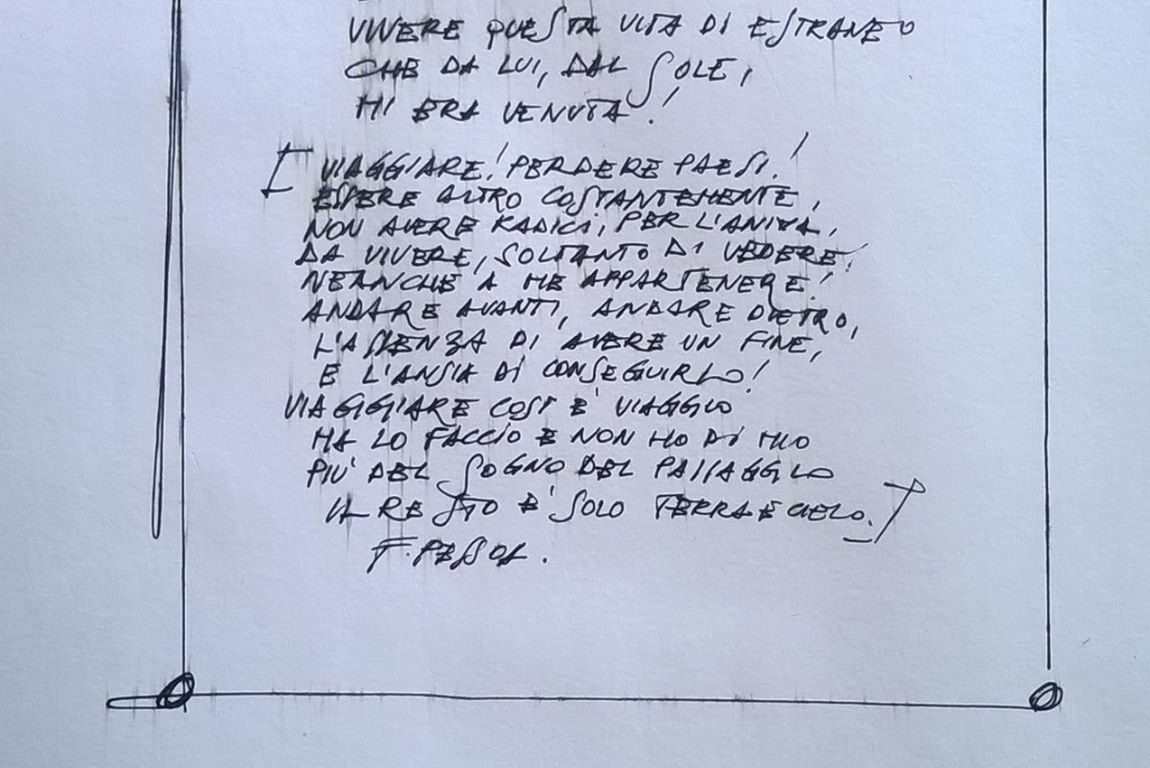 VIVERE QUESTA VITA DI ESTRANEO
CHE DA LUI, DAL SOLE,
MI ERA VENUTA!
[VIAGGIARE! PERDERE PAESI!
ESSERE ALTRO COSTANTEMENTE,
NON AVERE RADICI, PER L'ANIMA,
DA VIVERE, SOLTANTO DI VEDERE!
NEANCHE A ME APPARTENERE!
ANDARE AVANTI, ANDARE DIETRO,
L'ASSENZA DI AVERE UN FINE,
E L'ANSIA DI CONSEGUIRLO!
VIAGGIARE COSI È VIAGGIO
MA LO FACCIO E NON HO DI MIO
PIÙ DEL SOGNO DEL PASSAGGIO
IL RESTO È SOLO TERRA E CIELO.]
F. PESSOA.